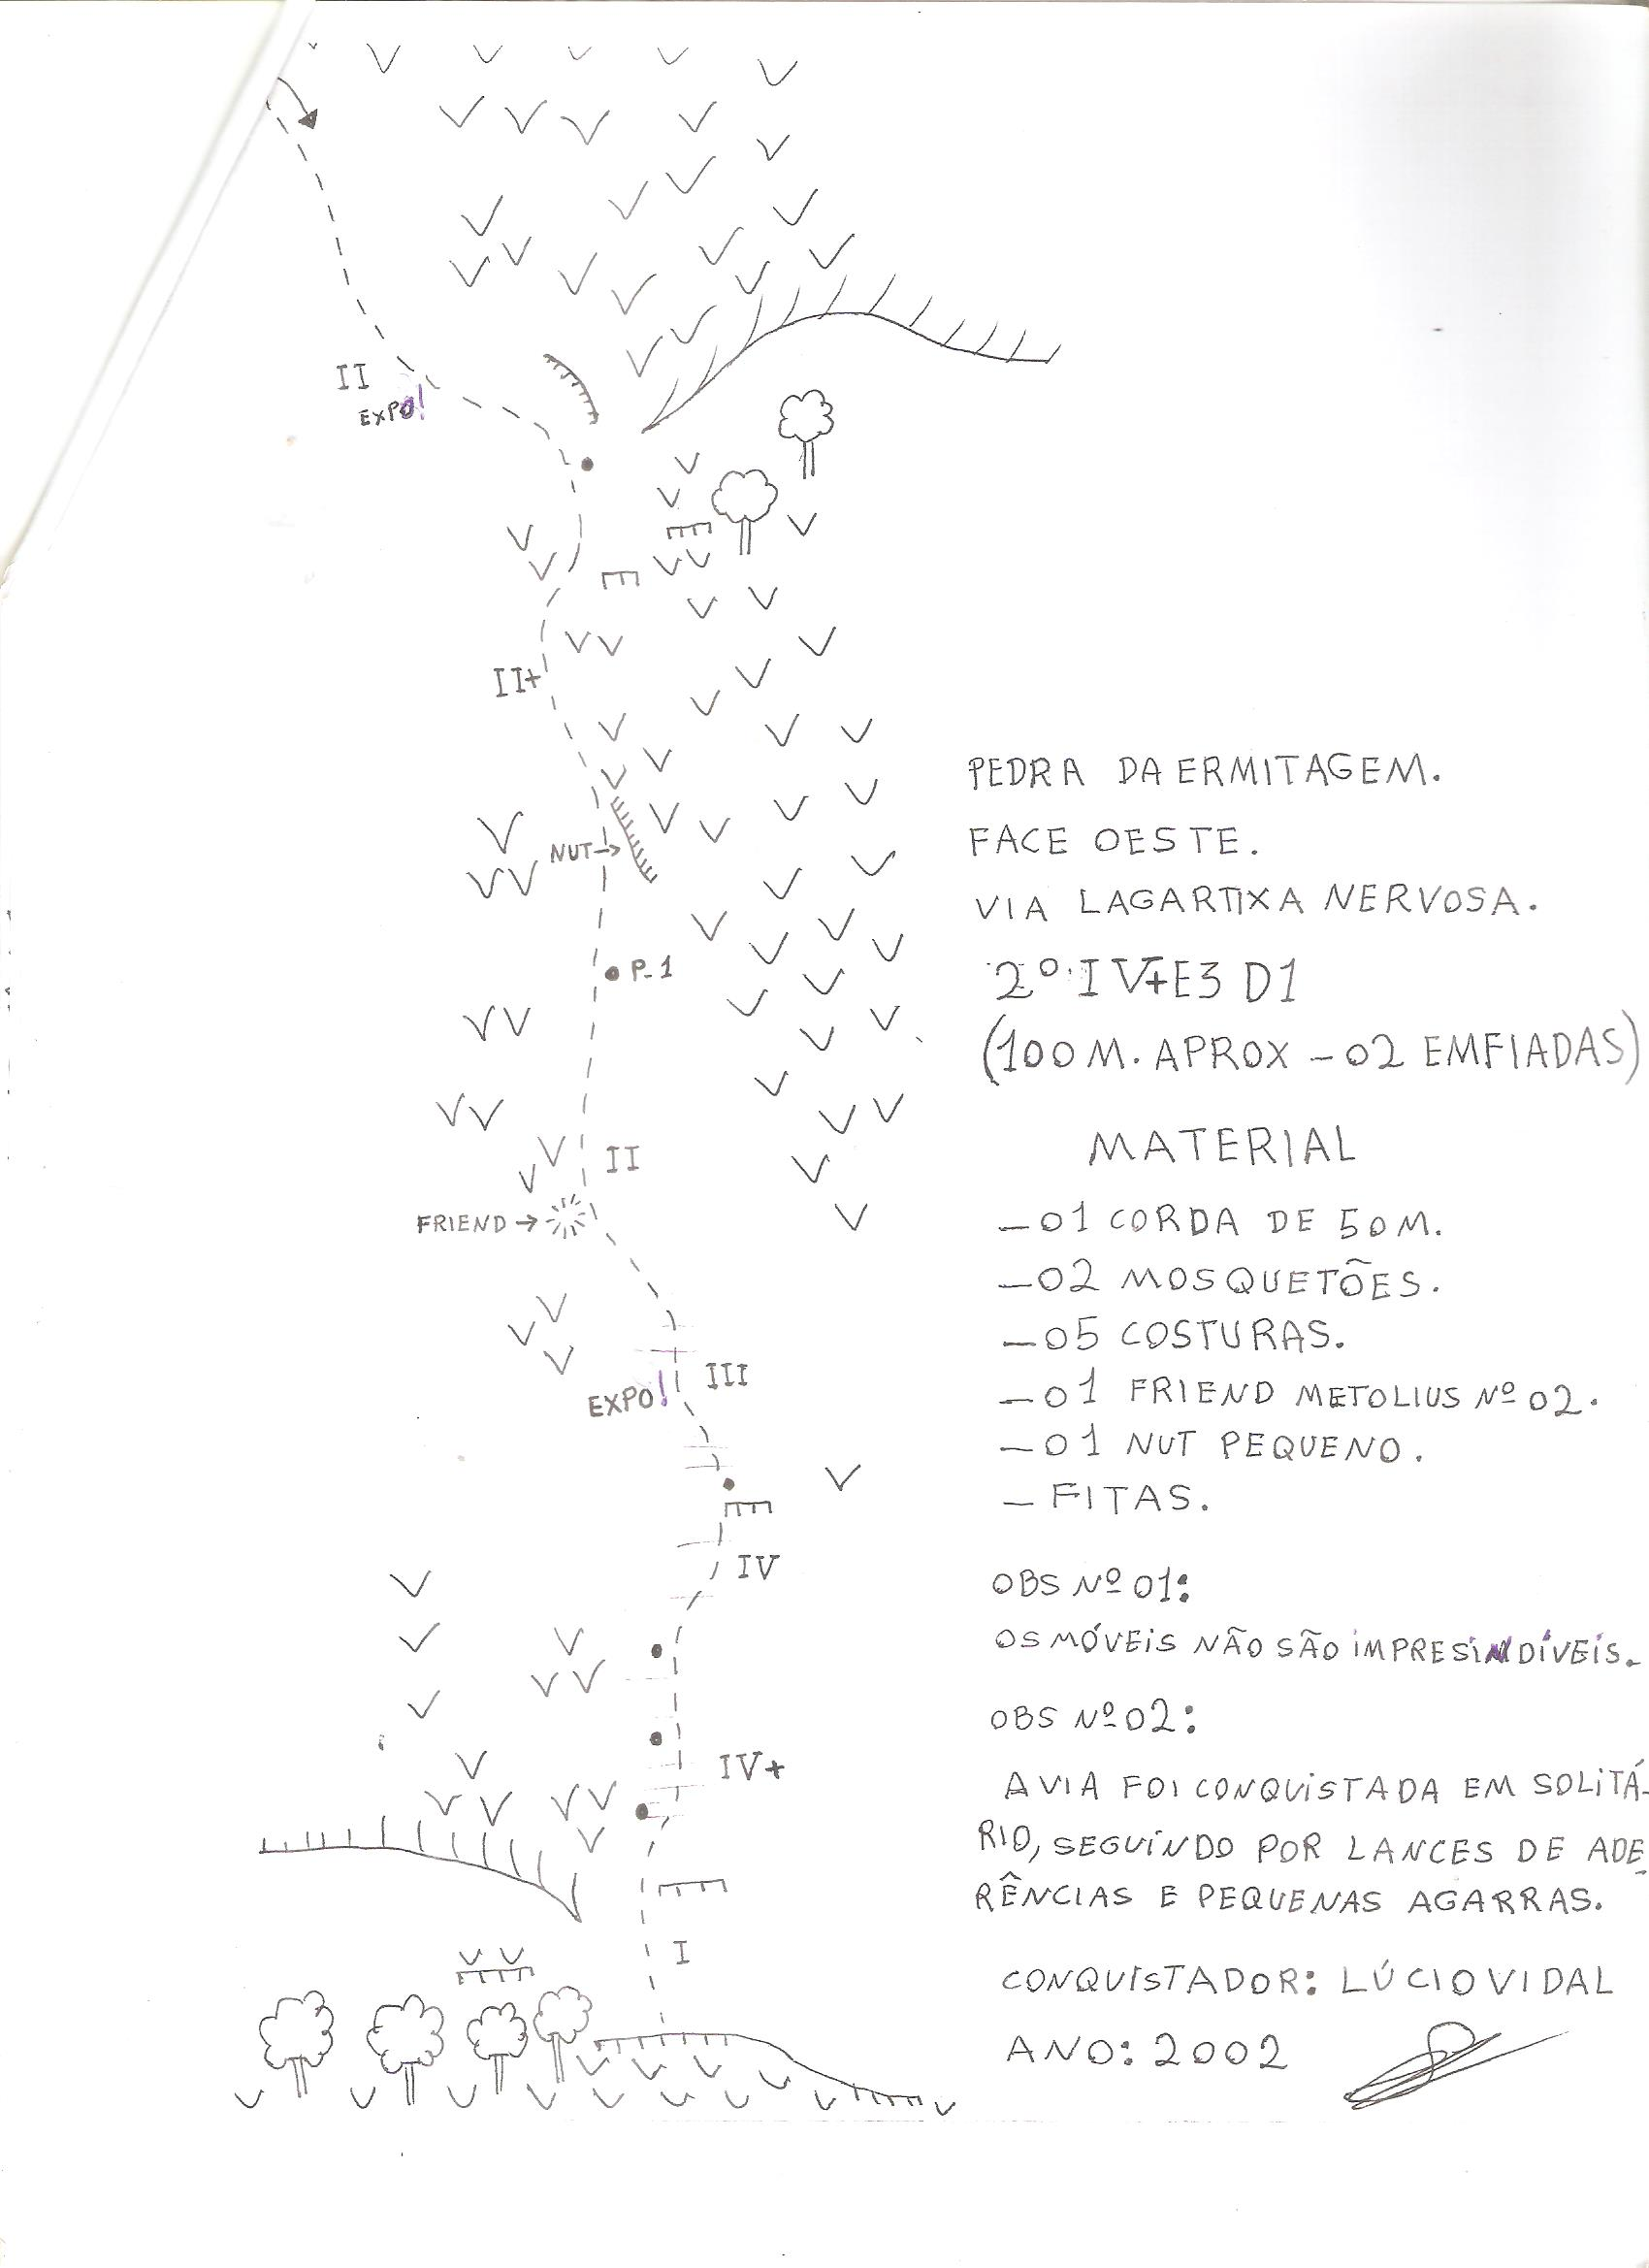 II
EXPO!
II+
NUT→
P-1
II
FRIEND→
III
EXPO!
IV
IV+
I
PEDRA DA ERMITAGEM.
FACE OESTE.
VIA LAGARTIXA NERVOSA.
2º IV+E3 D1
(100 M. APROX - 02 EMFIADAS)
MATERIAL
- 01 CORDA DE 50M.
- 02 MOSQUETÕES.
- 05 COSTURAS.
- 01 FRIEND METOLIUS Nº 02.
- 01 NUT PEQUENO.
- FITAS.
OBS Nº 01:
OS MÓVEIS NÃO SÃO IMPRESINDÍVEIS.
OBS Nº 02:
A VIA FOI CONQUISTADA EM SOLITÁ-
RIO, SEGUINDO POR LANCES DE ADE-
RÊNCIAS E PEQUENAS AGARRAS.
CONQUISTADOR: LÚCIO VIDAL
ANO: 2002